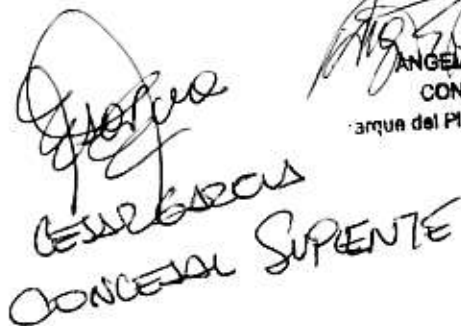 ANGEL
CON
arque del Pl
CESAR GARCIA
CONCEJAL SUPLENTE